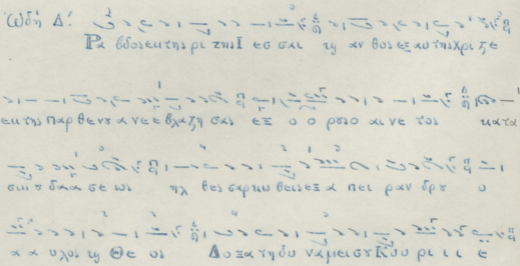 Ὠδή Δ΄. Ρα βδος εκ της ρι ζης Ι εσ σαι ϗ αν θος εξ αυ της Χρι ϛε
εκ της Παρ θε νȣ α νε ε βλα ϛη σας εξ ο ο ρȣς ο αι νε τος κα τα
σκι ȣ δα α σε ως ηλ θες σαρ κω θεις εξ α πει ραν δρȣ ο
α α υ λος ϗ Θε ος Δο ξα τη δυ να μει σȣ Κυ υ ρι ι ι ε